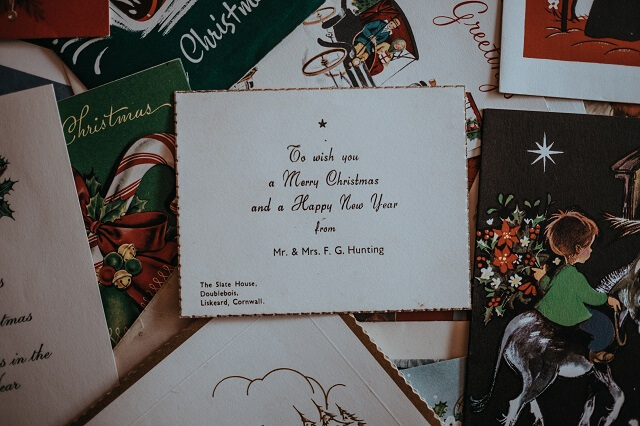 Christmas
Greetings
Christmas
★
To wish you
a Merry Christmas
and a Happy New Year
from
Mr. & Mrs. F. G. Hunting
The Slate House,
Doublebois,
Liskeard, Cornwall.
in the